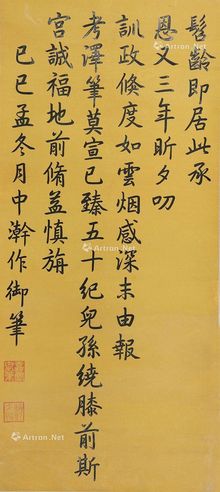 髫齡即居此承
恩又三年昕夕叨
訓政倏度如雲烟感深未由報
考澤筆莫宣已臻五十紀兒孫繞膝前斯
宮誠福地前脩益慎旃
己巳孟冬月中澣作御筆
Artron.Net
Artron.Net
Artron.Net